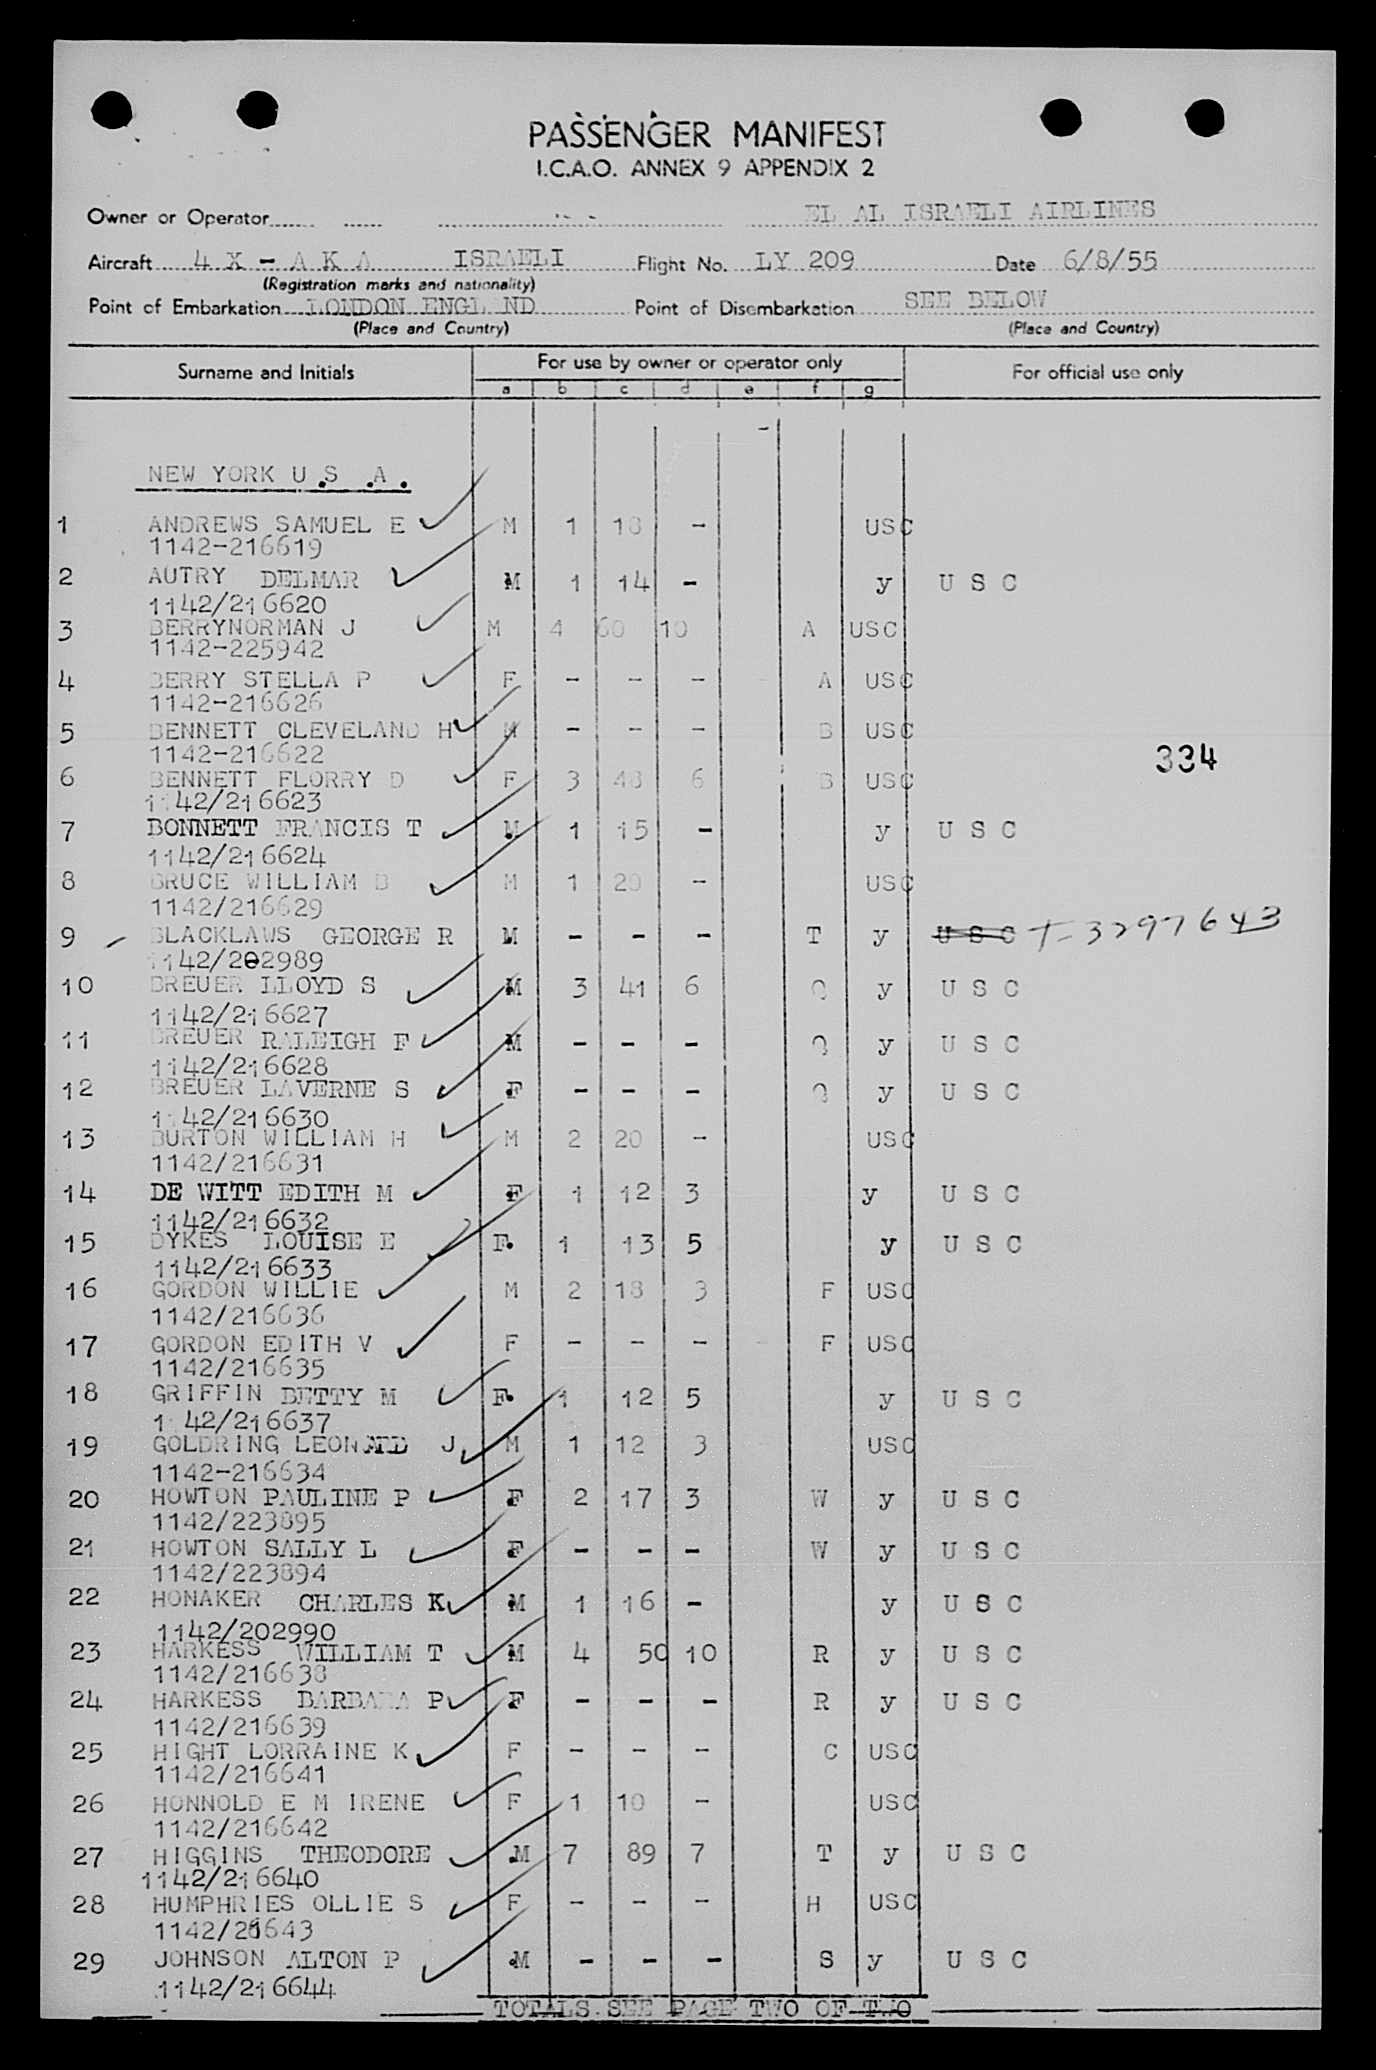 PASSENGER MANIFEST
I.C.A.O. ANNEX 9 APPENDIX 2
Owner or Operator EL AL ISRAELI AIRLINES
Aircraft 4 X - A K A ISRAELI Flight No. LY 209 Date 6/8/55
(Registration marks and nationality)
Point of Embarkation LONDON ENGL ND Point of Disembarkation SEE BELOW
(Place and Country) (Place and Country)
Surname and Initials For use by owner or operator only For official use only
a b c d e f g
NEW YORK U.S .A.
1 ANDREWS SAMUEL E M 1 18 - USC
1142-216619
2 AUTRY DELMAR M 1 14 - y U S C
1142/216620
3 BERRYNORMAN J M 4 60 10 A USC
1142-225942
4 BERRY STELLA P F - - - A USC
1142-216626
5 BENNETT CLEVELAND H M - - - B USC
1142-216622
334
6 BENNETT FLORRY D F 3 48 6 B USC
1142/216623
7 BONNETT FRANCIS T M 1 15 - y U S C
1142/216624
8 BRUCE WILLIAM B M 1 20 - USC
1142/216629
9 BLACKLAWS GEORGE R M - - - T y U S C T-3297643
1142/202989
10 BREUER LLOYD S M 3 41 6 Q y U S C
1142/216627
11 BREUER RALEIGH F M - - - Q y U S C
1142/216628
12 BREUER LAVERNE S F - - - Q y U S C
1142/216630
13 BURTON WILLIAM H M 2 20 - USC
1142/216631
14 DE WITT EDITH M F 1 12 3 y U S C
1142/216632
15 DYKES LOUISE E F. 1 13 5 y U S C
1142/216633
16 GORDON WILLIE M 2 18 3 F USC
1142/216636
17 GORDON EDITH V F - - - F USC
1142/216635
18 GRIFFIN BETTY M F. 1 12 5 y U S C
1 42/216637
19 GOLDRING LEONARD J M 1 12 3 USC
1142-216634
20 HOWTON PAULINE P F 2 17 3 W y U S C
1142/223895
21 HOWTON SALLY L F - - - W y U S C
1142/223894
22 HONAKER CHARLES K M 1 16 - y U S C
1142/202990
23 HARKESS WILLIAM T M 4 50 10 R y U S C
1142/216638
24 HARKESS BARBARA P F - - - R y U S C
1142/216639
25 HIGHT LORRAINE K F - - - C USC
1142/216641
26 HONNOLD E M IRENE F 1 10 - USC
1142/216642
27 HIGGINS THEODORE .M 7 89 7 T y U S C
1142/216640
28 HUMPHRIES OLLIE S F - - - H USC
1142/216643
29 JOHNSON ALTON P .M - - - S y U S C
1142/216644
TOTALS SEE PAGE TWO OF TWO